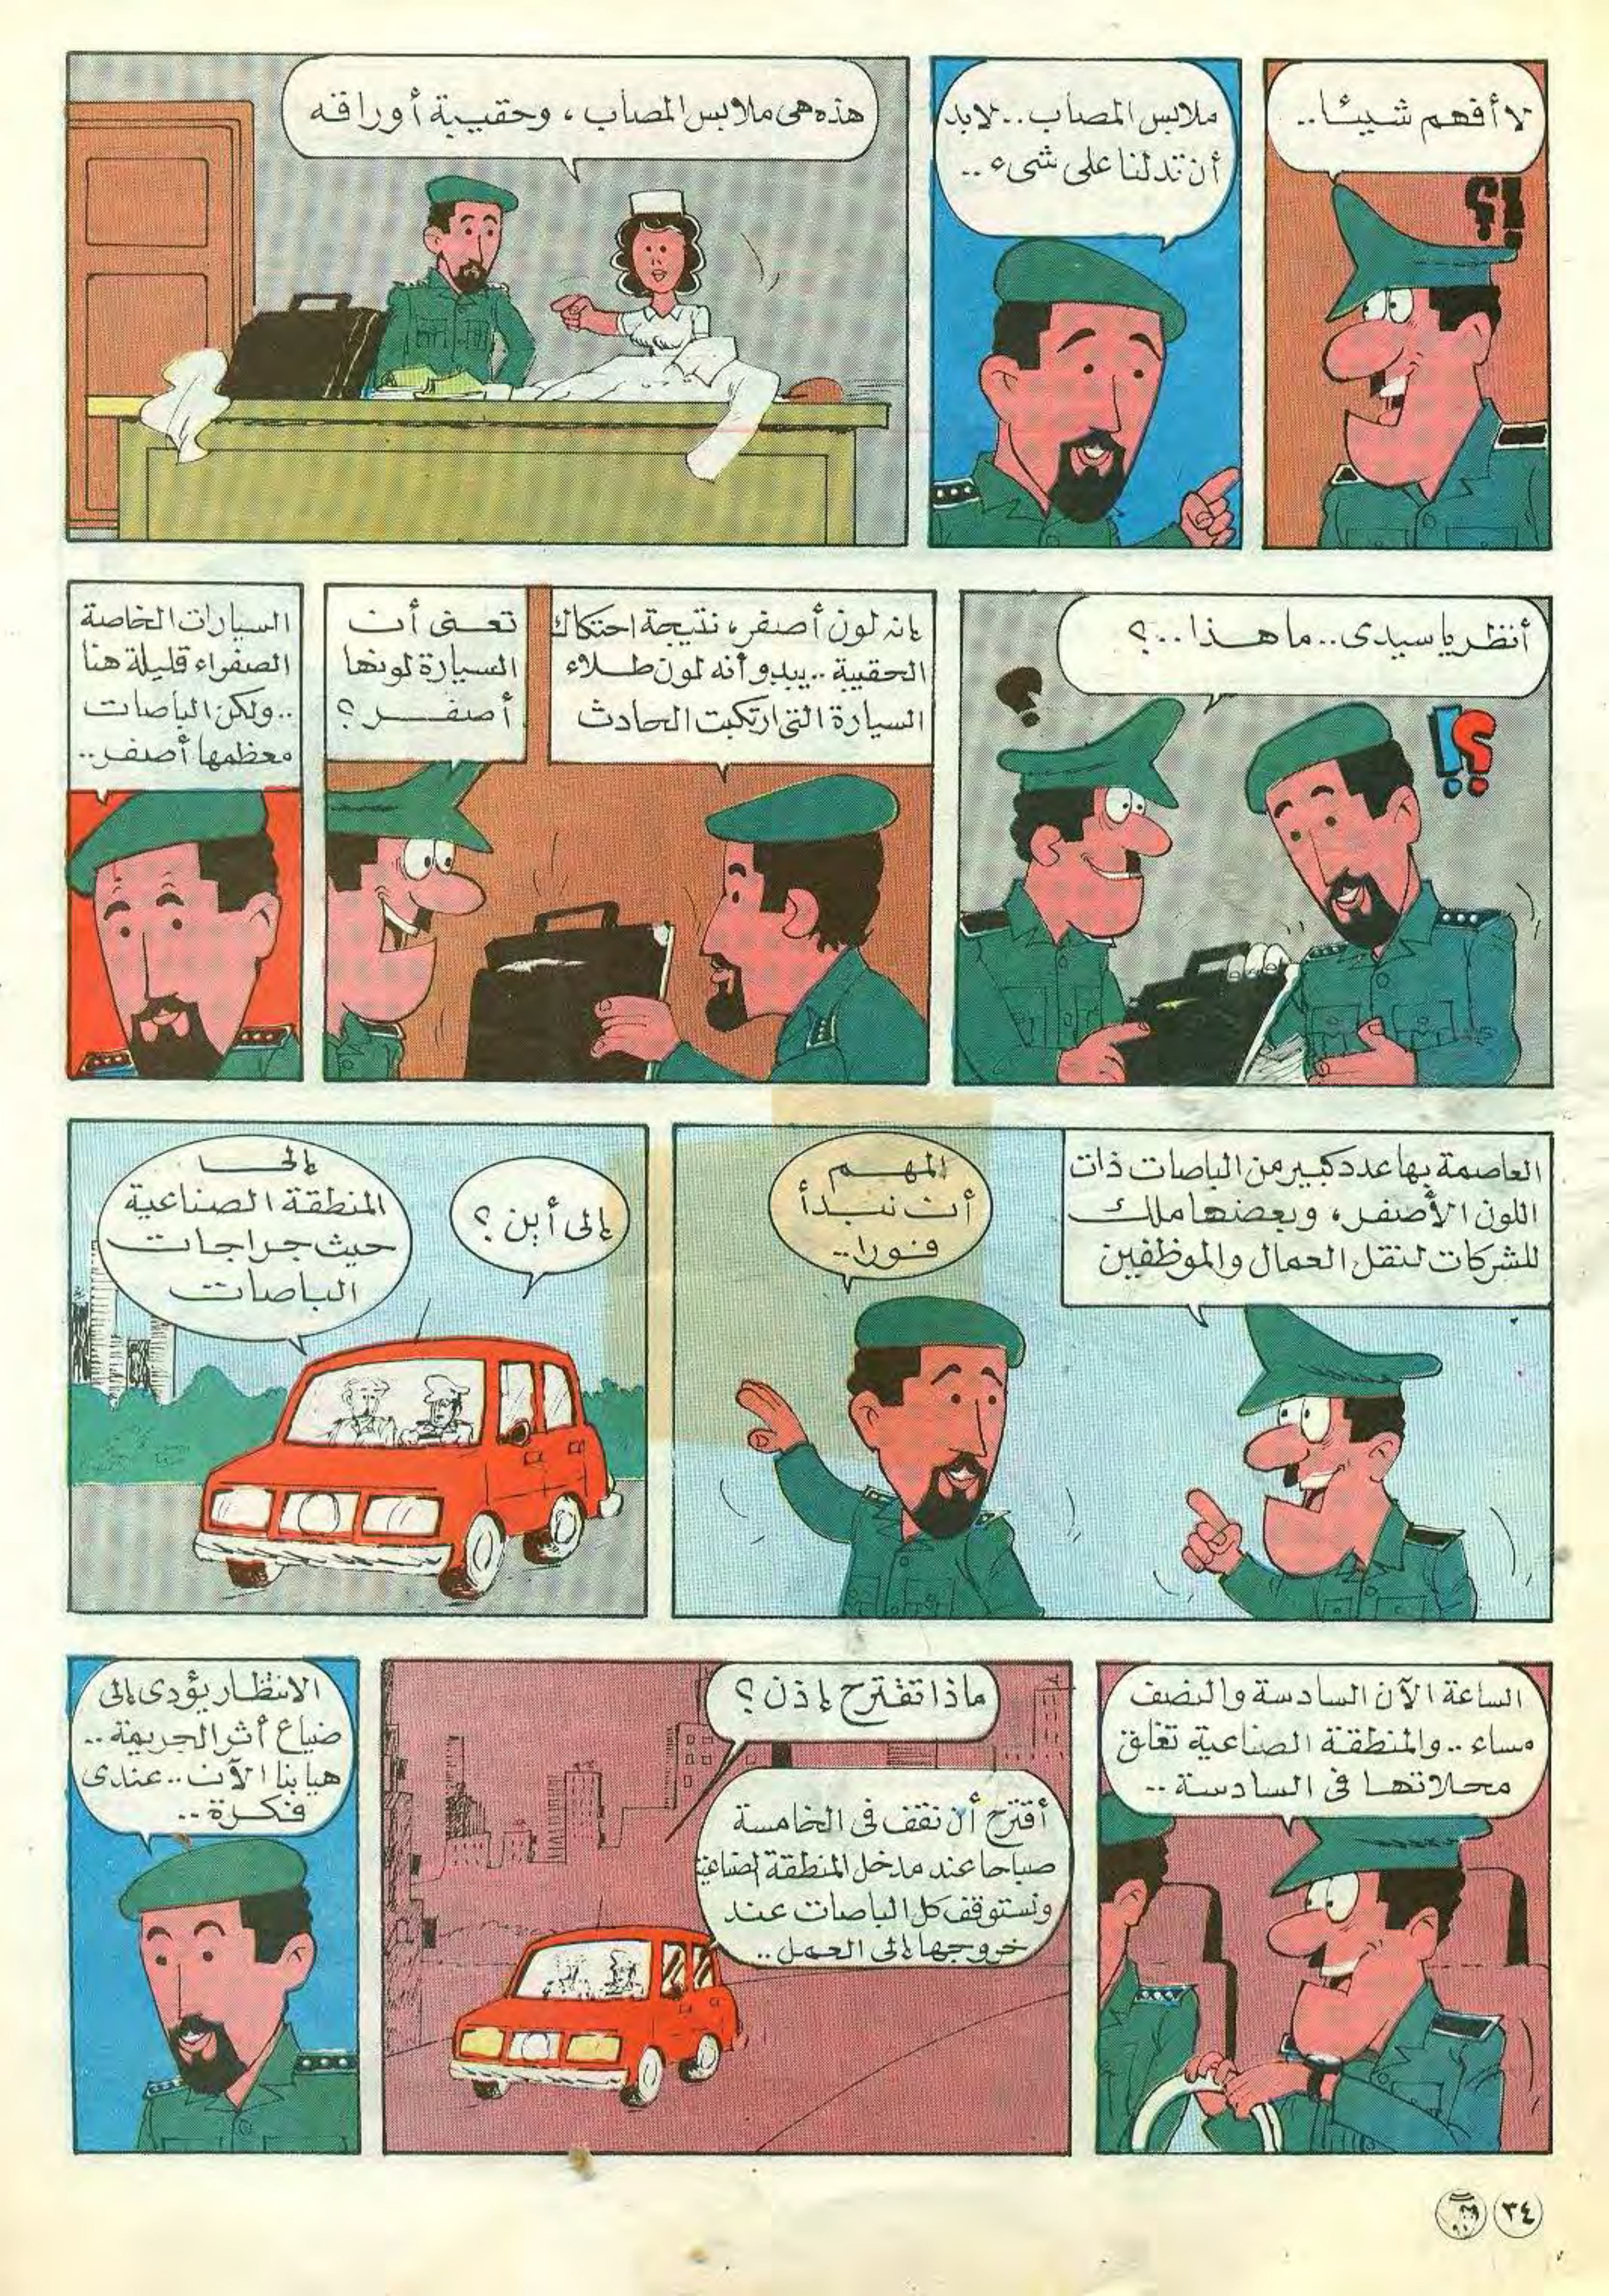 لا أفهم شيئا..
؟!
ملابس المصاب.. لابد
أن تدلنا على شىء..
هذه هى ملابس المصاب، وحقيبة أوراقه
أنظر يا سيدى.. ما هذا..؟
؟
؟!
إنه لون أصفر، نتيجة احتكاك
الحقيبة.. يبدو أنه لون طلاء
السيارة التى ارتكبت الحادث
تعنى أن
السيارة لونها
أصفر؟
السيارات الخاصة
الصفراء قليلة هنا
.. ولكن الباصات
معظمها أصفر..
العاصمة بها عدد كبير من الباصات ذات
اللون الأصفر، وبعضها ملك
للشركات لنقل العمال والموظفين
المهم
أن نبدأ
فورا..
إلى أين؟
إلى
المنطقة الصناعية
حيث جراجات
الباصات
الساعة الآن السادسة والنصف
مساء.. والمنطقة الصناعية تغلق
محلاتها فى السادسة..
ماذا تقترح إذن؟
أقترح أن نقف فى الخامسة
صباحا عند مدخل المنطقة الصناعية
ونستوقف كل الباصات عند
خروجها إلى العمل..
الانتظار يؤدى إلى
ضياع أثر الجريمة..
هيا بنا الآن.. عندى
فكرة..
٣٤